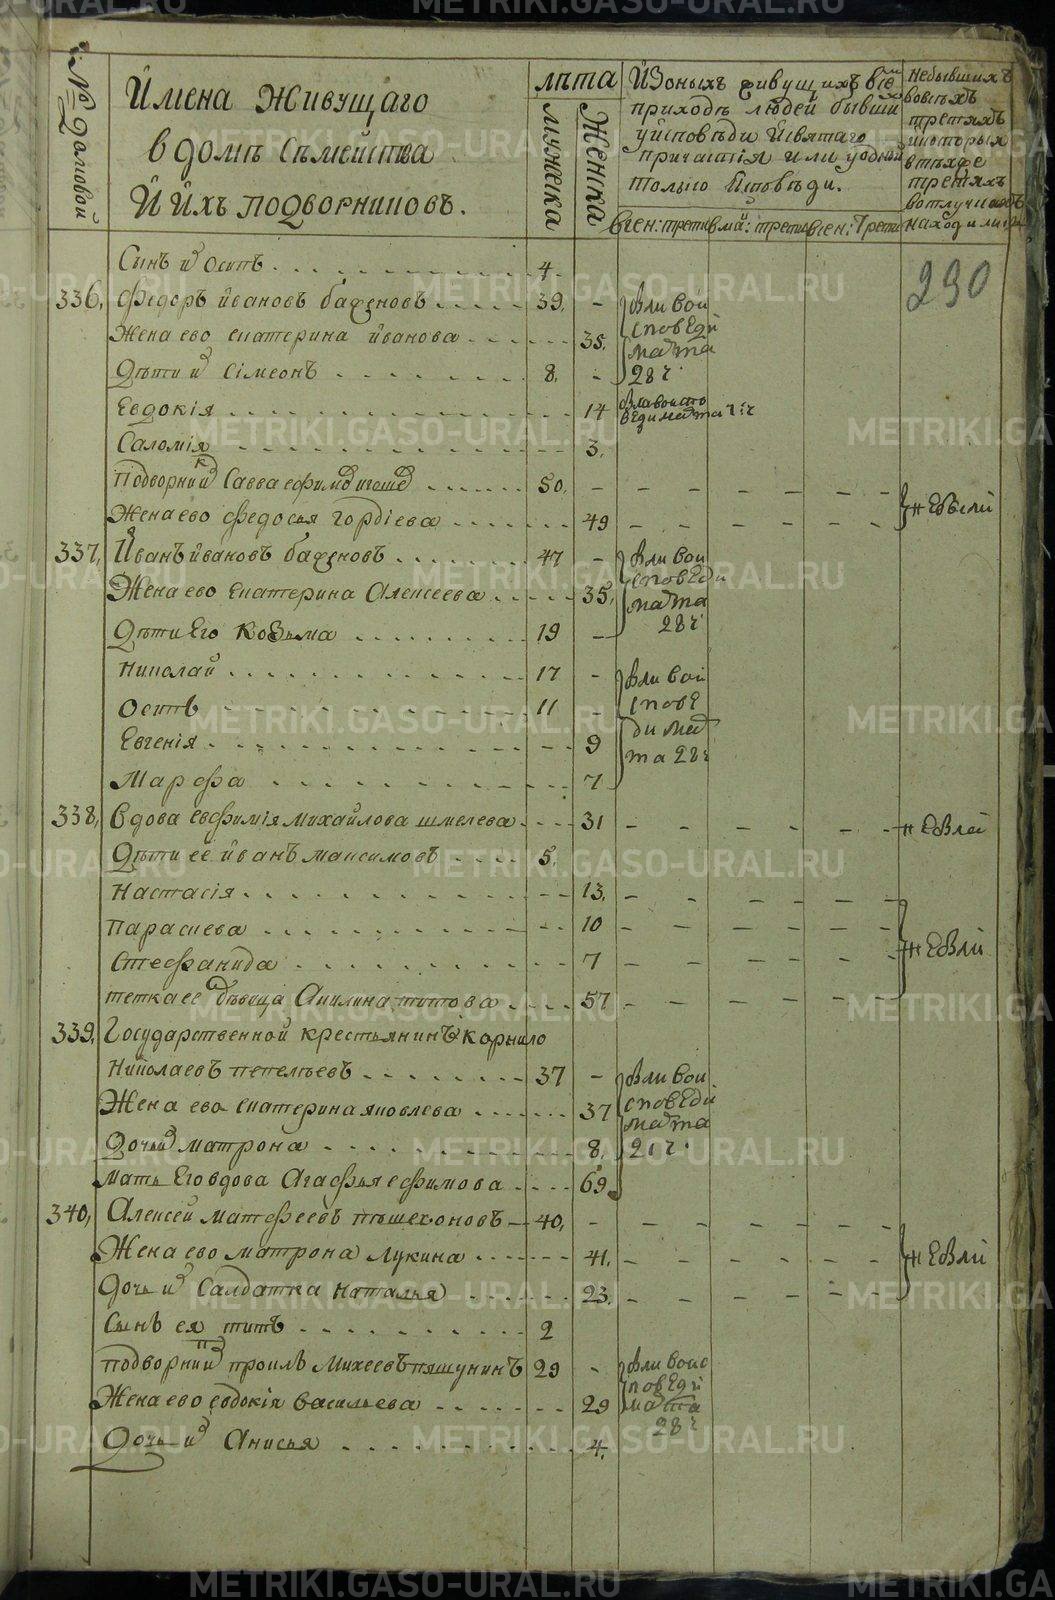 № Домовой
Имена живущаго
в доме семейства
И ихъ подворниковъ.
лѣта
мужеска
Женска
Изоныхъ живущихъ все
приходѣ людей бывши
уисповѣди Исвятаго
причастія или уодной
только Исповѣди.
вген: трети вмаи: трети всен: Трети
небывшихъ
вовсѣхъ
третяхъ
икоторыя
втѣхже
третяхъ
вотлучкахъ
находились
290
Сынъ и осипъ 4
336, Федоръ ивановъ баженовъ 39. -
Были вои
споведи
марта
28 ч
Жена ево екатерина иванова 35.
Дѣти и сімеонъ 8. -
Евдокія 14
Саломія 3.
Подворник Савва ефимов 50. - - - - - -
Жена ево федосья гордіева 49 - - - - - -
не были
337, Иванъ ивановъ баженовъ 47 -
были вои
споведи
марта
28 ч
Жена ево екатерина Алексеева 35,
Дѣти Его козьма 19 -
николай 17 -
были вои
спове
ди мар
та 28 ч
осипъ 11 -
Евгенія 9
Марфа 7
338, вдова евфимія михайлова шмелева 31 - - - - - - не была
Дѣти ее иванъ максимовъ 5.
настасія 13. - - - - - -
параскева 10 - - - - - -
стефанида 7 - - - - - -
не были
тетка ее девица Акилина титова 57 - - - - - -
339, Государственной крестьянинъ корнило
николаевъ пепелѣевъ 37 -
были вои
споведи
марта
21 ч
Жена ева екатерина яковлева 37
Дочь матрона 8.
мать Его вдова Агафья ефимова 69
340, Алексей матфеевъ пѣшехоновъ 40, - - - - - -
Жена ево матрона лукина 41. - - - - - -
не были
Дочь и Салдатка наталья 23. - - - - - -
Сынъ ея титъ 2
подворник проилъ михеевъ пяшунинъ 29 -
были воис
поведи
марта
28 ч
Жена ево евдокія васильева 29
Дочь и Анисья 4.
METRIKI.GASO-URAL.RU